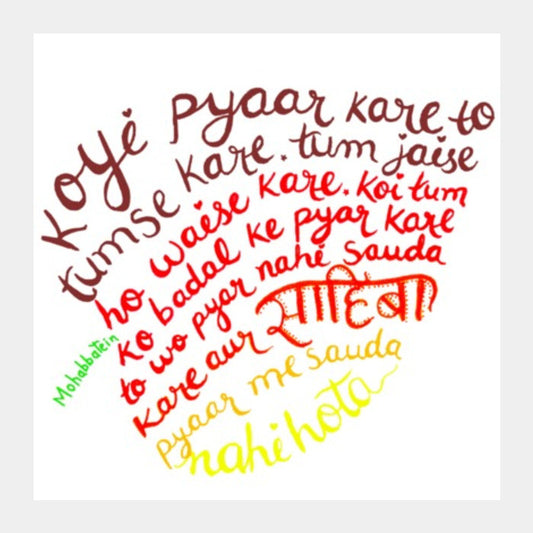 Koyi pyaar kare to
tumse kare. tum jaise
ho waise kare. Koi tum
ko badal ke pyar kare
to wo pyar nahi sauda
kare aur साहिबा
pyaar me sauda
nahi hota
Mohabbatein